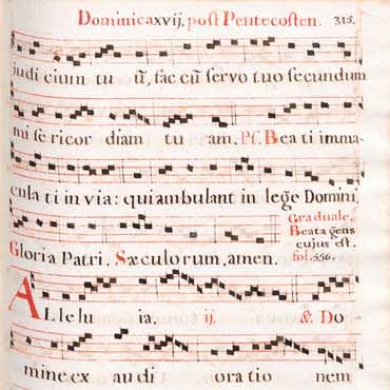 Dominica xvij. post Pentecosten. 315.
judi cium tu ũ, fac cũ servo tuo secundum
mi se ricor diam tu am. Ps. Bea ti imma-
cula ti in via: qui ambulant in lege Domini.
Gloria Patri. Sæculorum, amen.
Graduale,
Beata gens
cujus est.
fol. 556.
ALle lu ia. ij. ℣. Do-
mine ex au di ora tio nem